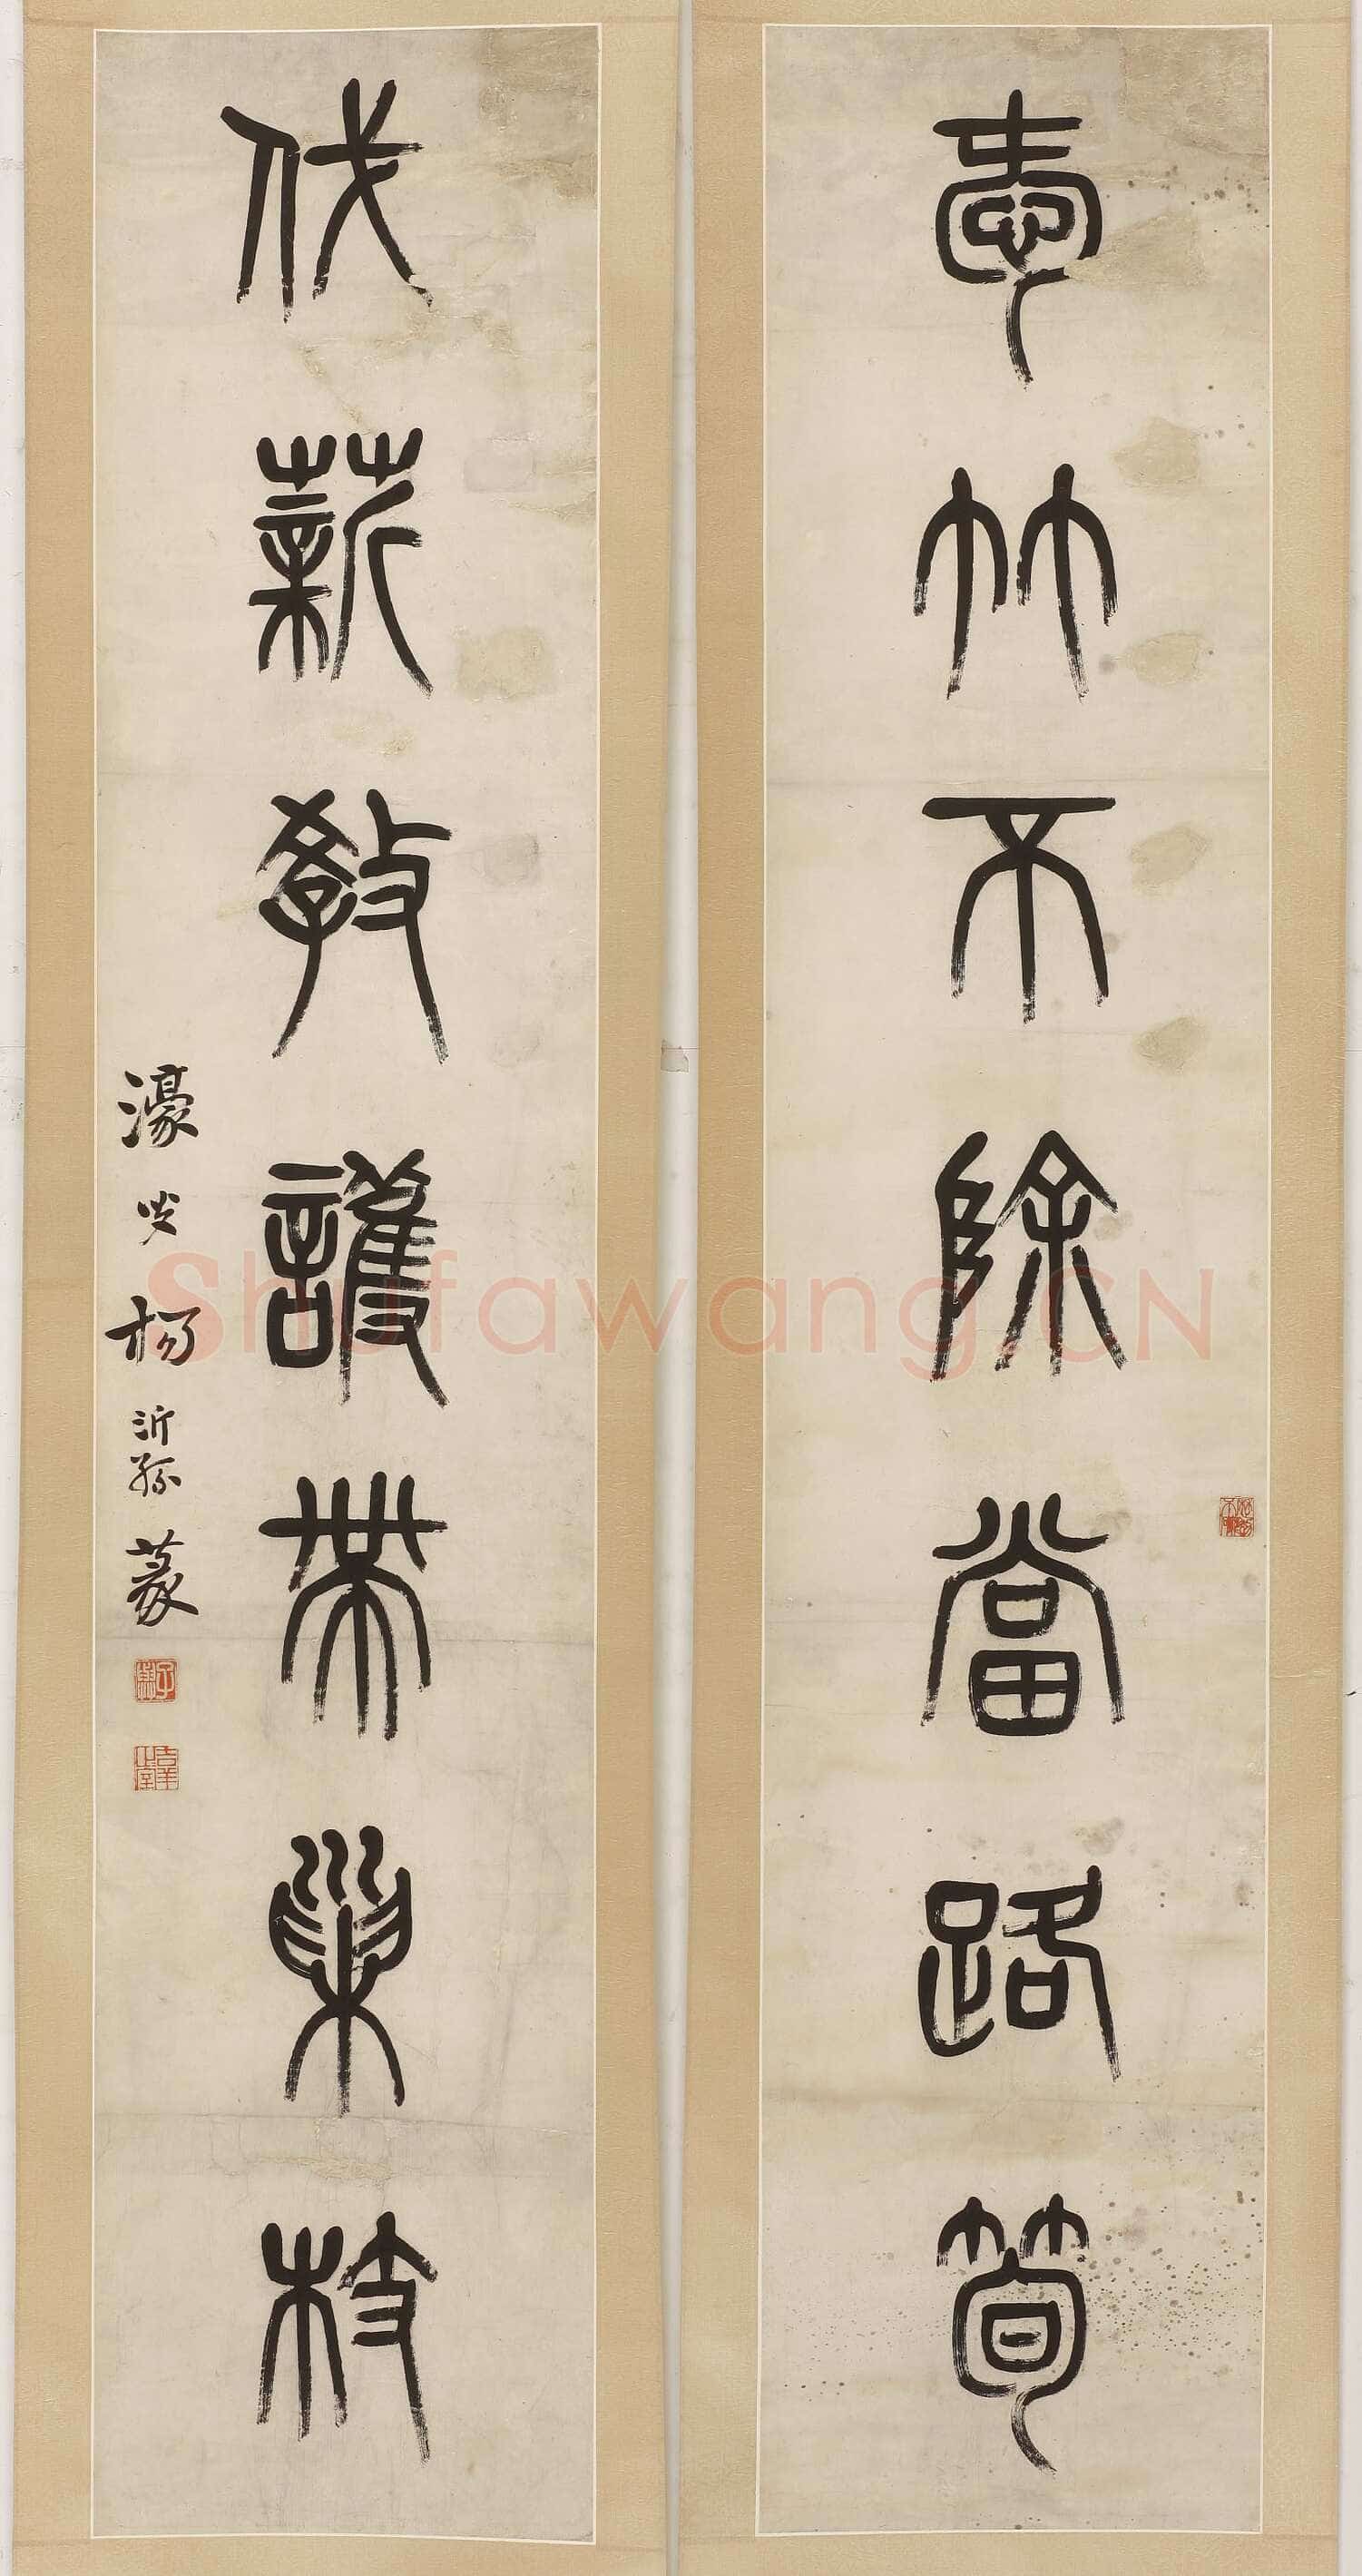 愛竹不除當路筍
伐薪教護帶巢枝
濠叟楊沂孫篆
Shufawang.CN